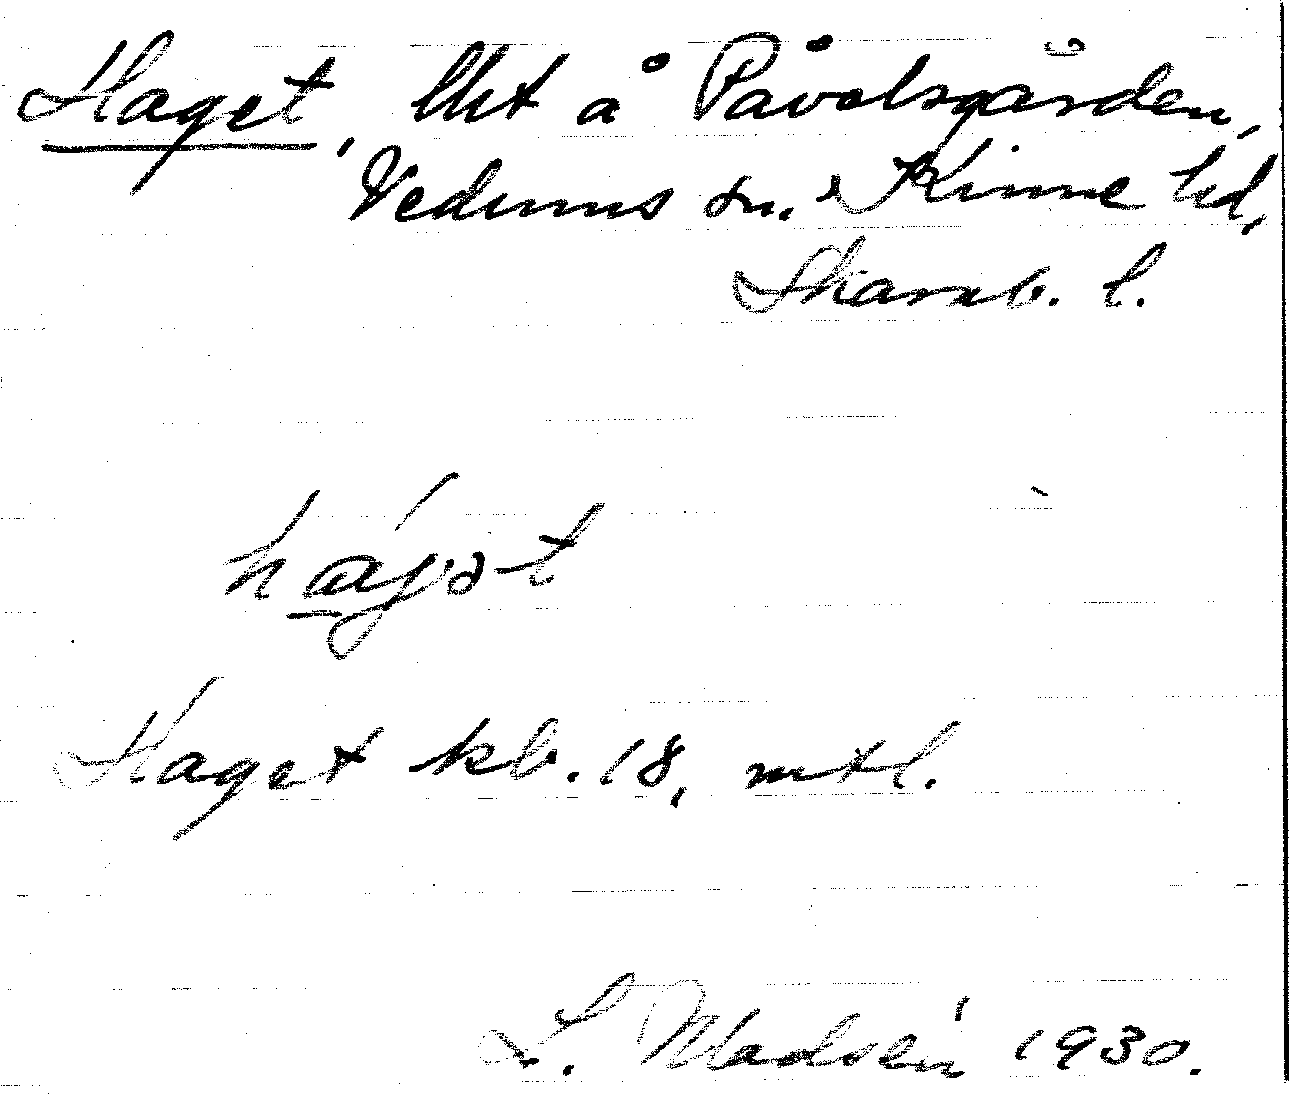 Haget, lht å Påvelsgården,
Vedums sn. Kinne hd,
Skarab. l.
hagət
Haget kb. 18, mtl.
L. Madsén 1930.